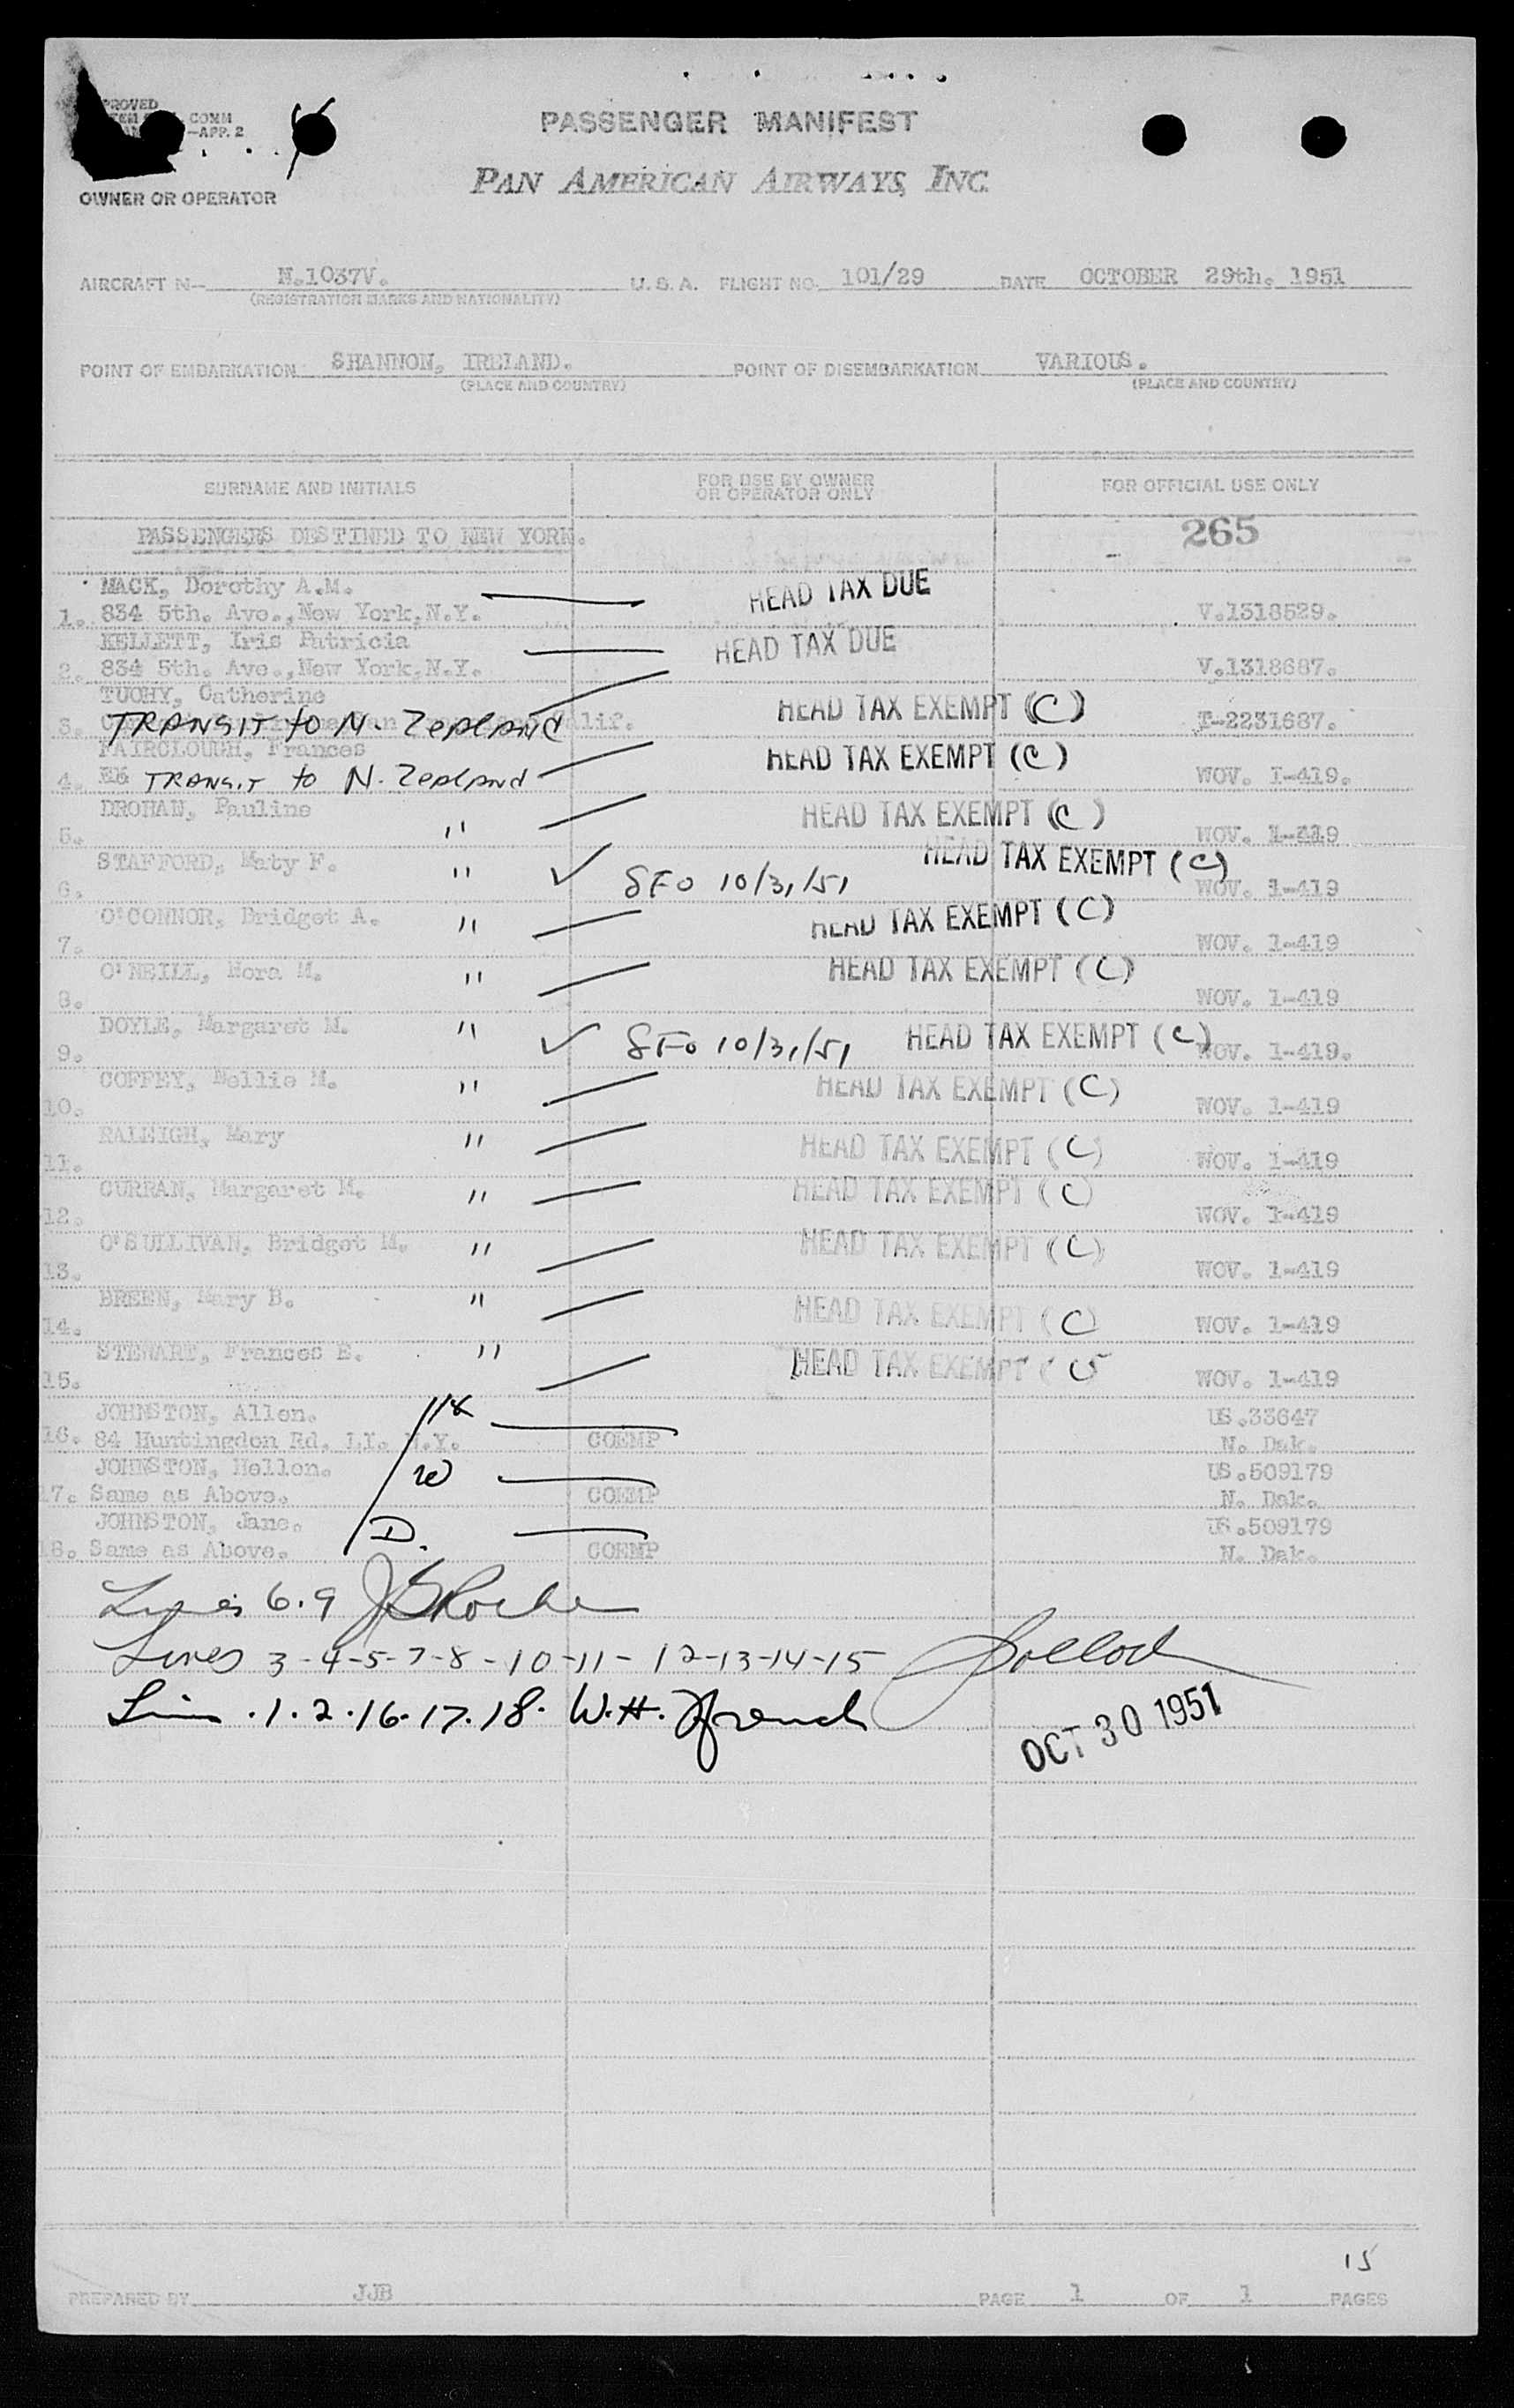 PASSENGER MANIFEST
COMM
—APP. 2
PAN AMERICAN AIRWAYS, INC.
OWNER OR OPERATOR
AIRCRAFT N— N.1037V. U. S. A. FLIGHT NO. 101/29 DATE OCTOBER 29th. 1951
(REGISTRATION MARKS AND NATIONALITY)
POINT OF EMBARKATION SHANNON, IRELAND. POINT OF DISEMBARKATION VARIOUS.
(PLACE AND COUNTRY) (PLACE AND COUNTRY)
SURNAME AND INITIALS FOR USE BY OWNER OR OPERATOR ONLY FOR OFFICIAL USE ONLY
PASSENGERS DESTINED TO NEW YORK. 265
MACK, Dorothy A.M. HEAD TAX DUE
1. 834 5th. Ave., New York, N.Y. V.1318529.
KELLETT, Iris Patricia HEAD TAX DUE
2. 834 5th. Ave., New York, N.Y. V.1318687.
TUOHY, Catherine HEAD TAX EXEMPT (C)
3. TRANSIT to N. Zealand Calif. T-2231687.
FAIRCLOUGH, Frances HEAD TAX EXEMPT (C)
4. TRANSIT to N. Zealand WOV. I-419.
DROHAN, Pauline HEAD TAX EXEMPT (C)
5. " WOV. 1-419
STAFFORD, Maty F. " ✓ SFO 10/31/51 HEAD TAX EXEMPT (C)
6. WOV. 1-419
O'CONNOR, Bridget A. " HEAD TAX EXEMPT (C)
7. WOV. 1-419
O'NEILL, Nora M. " HEAD TAX EXEMPT (C)
8. WOV. 1-419
DOYLE, Margaret M. " ✓ SFO 10/31/51 HEAD TAX EXEMPT (C)
9. WOV. 1-419.
COFFEY, Nellie M. " HEAD TAX EXEMPT (C)
10. WOV. 1-419
RALEIGH, Mary " HEAD TAX EXEMPT (C)
11. WOV. 1-419
CURRAN, Margaret M. " HEAD TAX EXEMPT (C)
12. WOV. 1-419
O'SULLIVAN, Bridget M. " HEAD TAX EXEMPT (C)
13. WOV. 1-419
BREEN, Mary B. " HEAD TAX EXEMPT (C)
14. WOV. 1-419
STEWART, Frances E. " HEAD TAX EXEMPT (C)
15. WOV. 1-419
JOHNSTON, Allen. US.33647
16. 84 Huntingdon Rd. LI. N.Y. COEMP N. Dak.
JOHNSTON, Hellen. W US.509179
17. Same as Above. COEMP N. Dak.
JOHNSTON, Jane. D. US.509179
18. Same as Above. COEMP N. Dak.
Lines 6.9 J Roche
Lines 3-4-5-7-8-10-11-12-13-14-15 Pollock
Lines .1.2.16.17.18. W.H. French
OCT 30 1951
15
PREPARED BY JJB PAGE 1 OF 1 PAGES